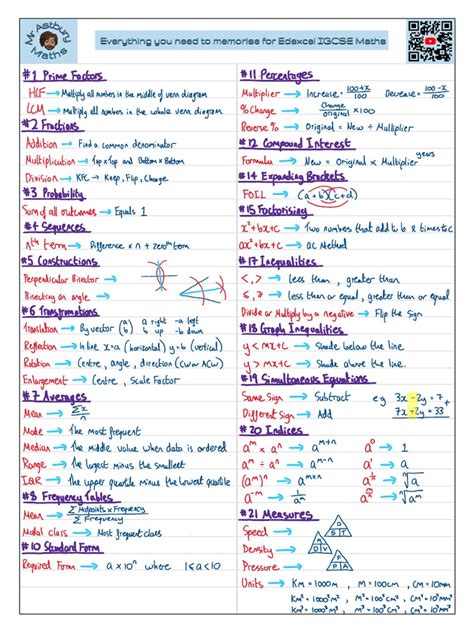 Mr Astbury
Maths
Everything you need to memorise for Edexcel IGCSE Maths
#1 Prime Factors
HCF → Multiply all numbers in the middle of venn diagram
LCM → Multiply all numbers in the whole venn diagram
#2 Fractions
Addition → Find a common denominator
Multiplication → Top x Top and Bottom x Bottom
Division → KFC → Keep, Flip, Change
#3 Probability
Sum of all outcomes → Equals 1
#4 Sequences
nth term → Difference x n + zeroth term
#5 Constructions
Perpendicular Bisector →
Bisecting an angle →
#6 Transformations
Translation → By vector (a b) a right -a left
b up -b down
Reflection → In line x=a (horizontal) y=b (vertical)
Rotation → Centre, angle, direction (CW or ACW)
Enlargement → Centre, Scale Factor
#7 Averages
Mean → Σx/n
Mode → The most frequent
Median → The middle value when data is ordered
Range → The largest minus the smallest
IQR → The upper quartile minus the lowest quartile
#8 Frequency Tables
Mean → Σ Midpoints x Frequency / Σ Frequency
Modal Class → Most frequent class
#10 Standard Form
Required Form → a x 10ⁿ where 1≤a<10
#11 Percentages
Multiplier → Increase = 100+x/100 Decrease = 100-x/100
% Change → Change/original x100
Reverse % → Original = New ÷ Multiplier
#12 Compound Interest
Formula → New = Original x Multiplier^years
#14 Expanding Brackets
FOIL → (a+b)(c+d)
#15 Factorising
x²+bx+c → Two numbers that add to b & times to c
ax²+bx+c → ac Method
#17 Inequalities
<, > → less than, greater than
≤, ≥ → less than or equal, greater than or equal
Divide or Multiply by a negative → Flip the Sign
#18 Graph Inequalities
y < mx+c → Shade below the line.
y > mx+c → Shade above the line.
#19 Simultaneous Equations
Same Sign → Subtract eg 3x - 2y = 7
Different Sign → Add 7x + 2y = 33
#20 Indices
aᵐ x aⁿ → aᵐ⁺ⁿ a⁰ → 1
aᵐ ÷ aⁿ → aᵐ⁻ⁿ
#21 Measures
Speed → D S T
Density → M D V
Pressure → F P A
Units → Km = 1000m, M = 100cm, Cm = 10mm